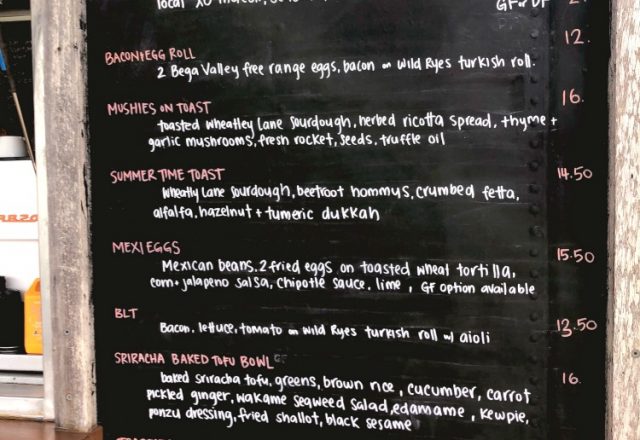 local XO
GF or DF
BACON+EGG ROLL 12.
2 Bega Valley free range eggs, bacon on Wild Ryes turkish roll.
MUSHIES ON TOAST 16.
toasted Wheatley Lane Sourdough, herbed ricotta spread, thyme +
garlic mushrooms, fresh rocket, seeds, truffle oil
SUMMER TIME TOAST 14.50
Wheatly Lane sourdough, beetroot hommus, crumbed fetta,
alfalfa, hazelnut + tumeric dukkah
MEXI EGGS 15.50
Mexican beans, 2 fried eggs on toasted wheat tortilla,
corn + jalapeno salsa, chipotle sauce, lime, GF option available
BLT 13.50
Bacon, lettuce, tomato on Wild Ryes turkish roll w/ aioli
SRIRACHA BAKED TOFU BOWL GF 16.
baked sriracha tofu, greens, brown rice, cucumber, carrot
pickled ginger, wakame seaweed salad, edamame, kewpie,
ponzu dressing, fried shallot, black sesame